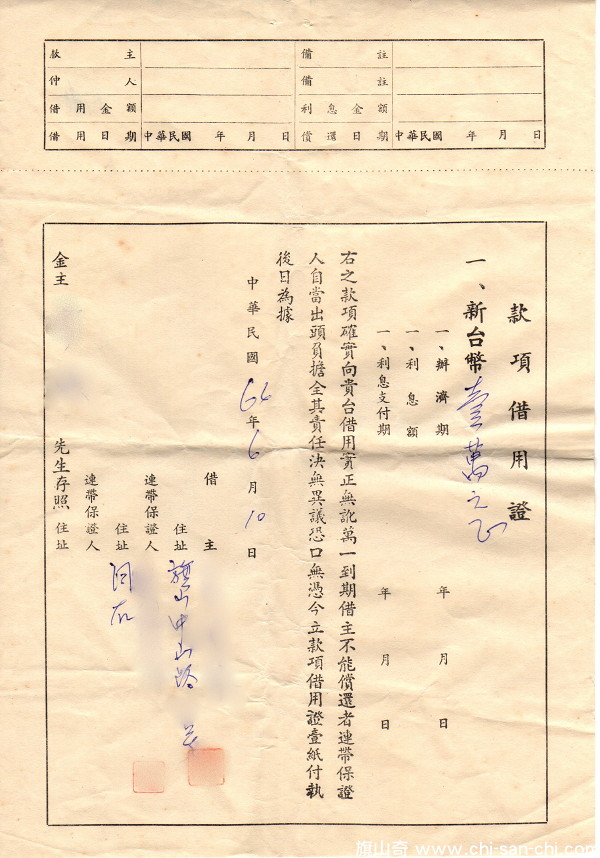 款主
仲人
借用金額
借用日期 中華民國 年 月 日
備註
備註
利息金額
償還日期 中華民國 年 月 日
款項借用證
一、新台幣壹萬元正
一、辦濟期 年 月 日
一、利息額
一、利息支付期 年 月 日
右之款項確實向貴台借用實正無訛萬一到期借主不能償還者連帶保證
人自當出頭負擔全其責任決無異議恐口無憑今立款項借用證壹紙付執
後日為據
中華民國 66 年 6 月 10 日
借主
住址 旗山中山路
連帶保證人
住址 同右
連帶保證人
住址
金主 先生存照
旗山奇 www.chi-san-chi.com